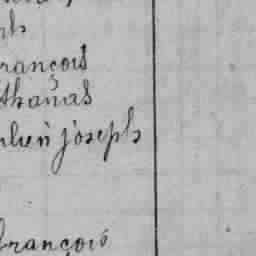 ph
rançois
thanas
ulien joseph
françois